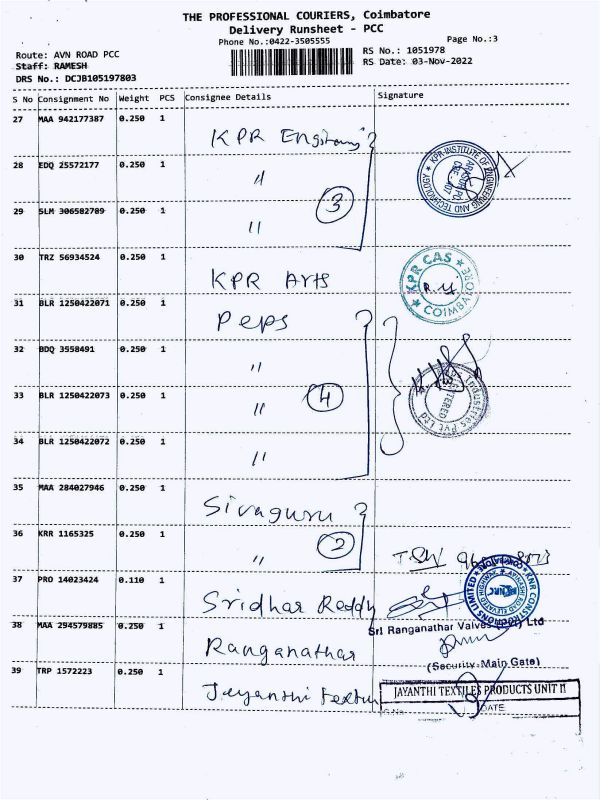 THE PROFESSIONAL COURIERS, Coimbatore
Delivery Runsheet - PCC
Phone No.:0422-3505555
Page No.:3
Route: AVN ROAD PCC
RS No.: 1051978
Staff: RAMESH
RS Date: 03-Nov-2022
DRS No.: DCJB105197803
S No Consignment No Weight PCS Consignee Details Signature
27 MAA 942177387 0.250 1
KPR
KPR INSTITUTE OF ENGINEERING AND TECHNOLOGY
28 EDQ 25572177 0.250 1
"
3
29 SLM 306582789 0.250 1
"
30 TRZ 56934524 0.250 1
KPR Arts
KPR CAS
COIMBATORE
31 BLR 1250422071 0.250 1
Peps
32 BDQ 3558491 0.250 1
"
33 BLR 1250422073 0.250 1
"
4
Industries Pvt Ltd
34 BLR 1250422072 0.250 1
"
35 MAA 284027946 0.250 1
Sivaguru
36 KRR 1165325 0.250 1
"
2
37 PRO 14023424 0.110 1
Sridhar Reddy
KNR CONSTRUCTIONS LIMITED
38 MAA 294579885 0.250 1
Sri Ranganathar Valves (P) Ltd
Ranganathar
(Security Main Gate)
39 TRP 1572223 0.250 1
Jayanthi
JAYANTHI TEXTILES PRODUCTS UNIT II
DATE